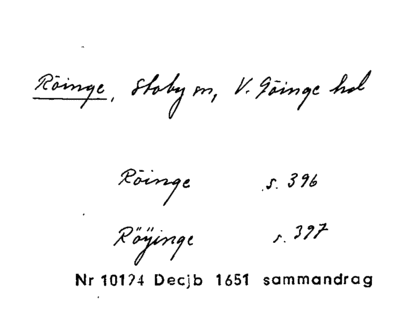 Röinge, Stoby sn, V. Göinge hd
Röinge s. 396
Röÿinge s. 397
Nr 10174 Decjb 1651 sammandrag